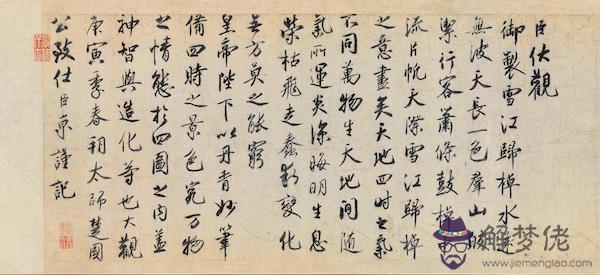 臣伏觀
御製雪江歸棹水遠
無波天長一色羣山皎
潔行客蕭條鼓棹中
流片帆天際雪江歸棹
之意盡矣天地四時之氣
不同萬物生天地間隨
氣所運炎涼晦明生息
榮枯飛走蠢動變化
無方莫之能窮
皇帝陛下以丹青妙筆
備四時之景色究萬物
之情態於四圖之內蓋
神智與造化等也大觀
庚寅季春朔太師楚國
公致仕臣京謹記
解梦佬